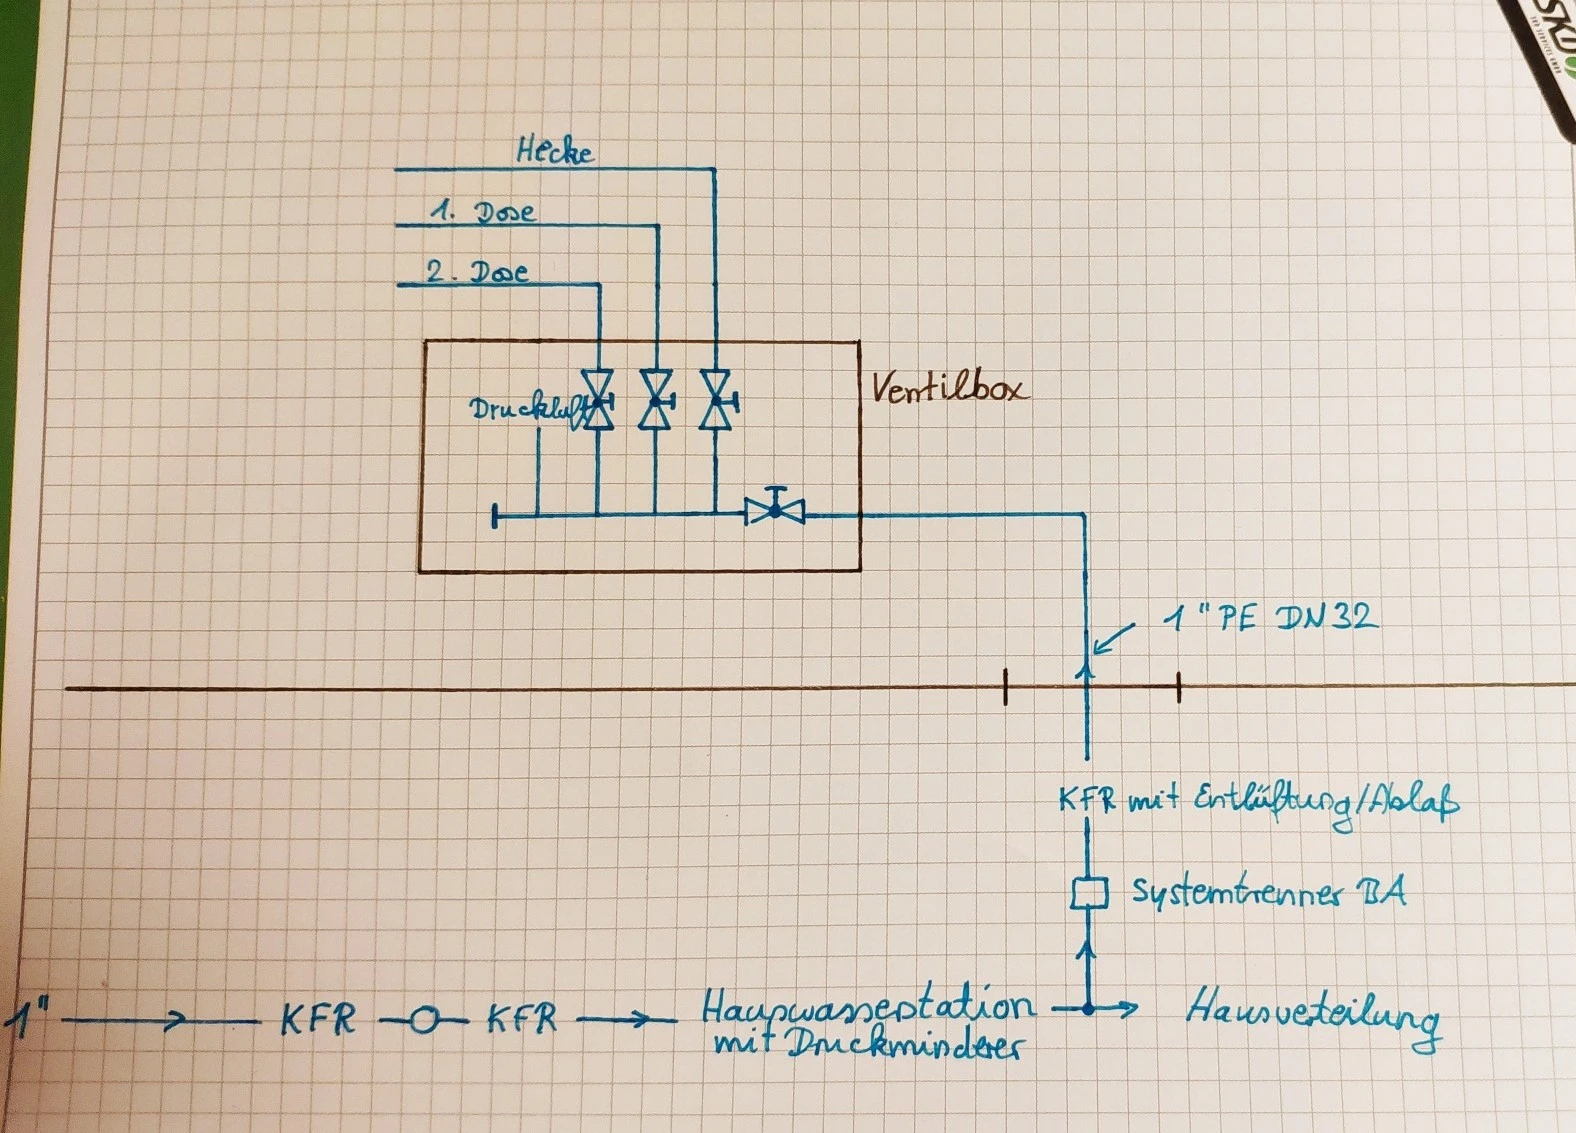 SKD
Hecke
1. Dose
2. Dose
Ventilbox
Druckluft
1" PE DN32
KFR mit Entlüftung/Ablaß
Systemtrenner BA
1" KFR KFR Haupwasserstation Hausverteilung
mit Druckminderer